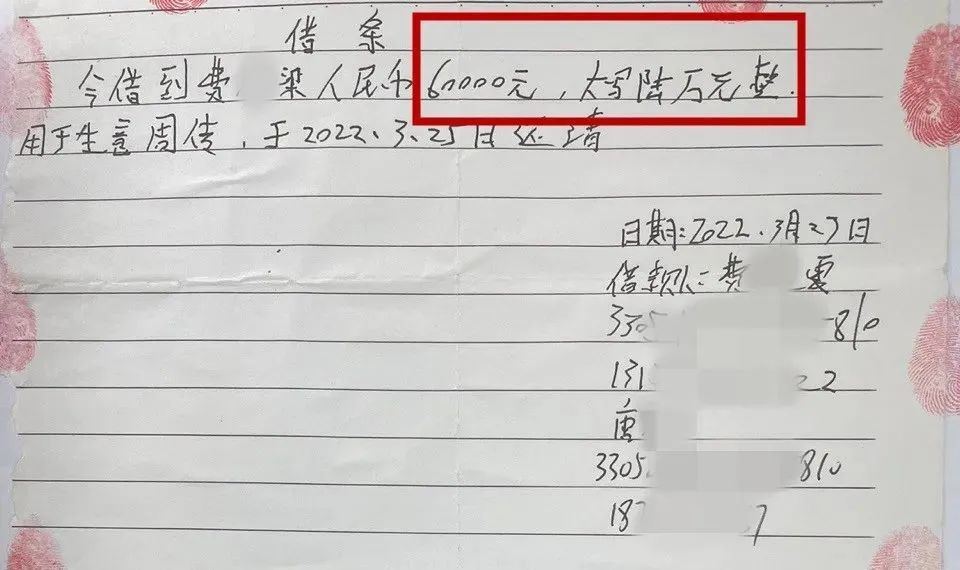 借条
今借到费 梁人民币60000元，大写陆万元整.
用于生意周传，于2022.3.25日还清
日期:2022.3月27日
借款人:费 雯
3305 810
131 2
唐
3305 810
187 7